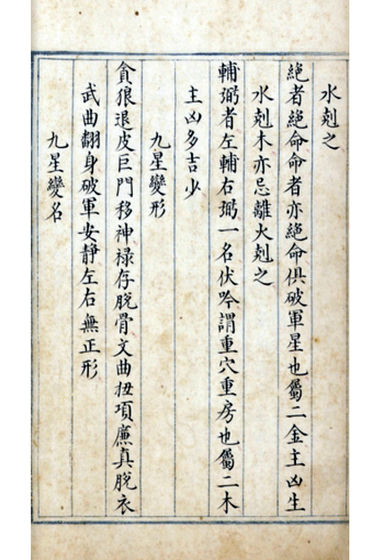 水剋之
絕者絕命命者亦絕命俱破軍星也屬二金主凶生
水剋木亦忌離火剋之
輔弼者左輔右弼一名伏吟謂重穴重房也屬二木
主凶多吉少
九星變形
貪狼退皮巨門移神祿存脫骨文曲扭項廉真脫衣
武曲翻身破軍安靜左右無正形
九星變名